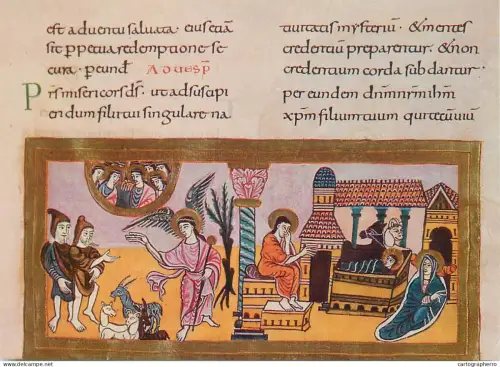 est aduentu saluata. eius etiā
sit ꝑpetua redemptione se
cura . per eund Ad uesp̄
misericors ds̄ . ut ad suscipi
endum filii tui singulare na
tiuitatis mysteriū . & mentes
credentiū preparentur . & non
credentium corda subdantur .
per eundem dn̄m nr̄m ihm̄
xp̄m filium tuum qui tecū uiu
cartographerro